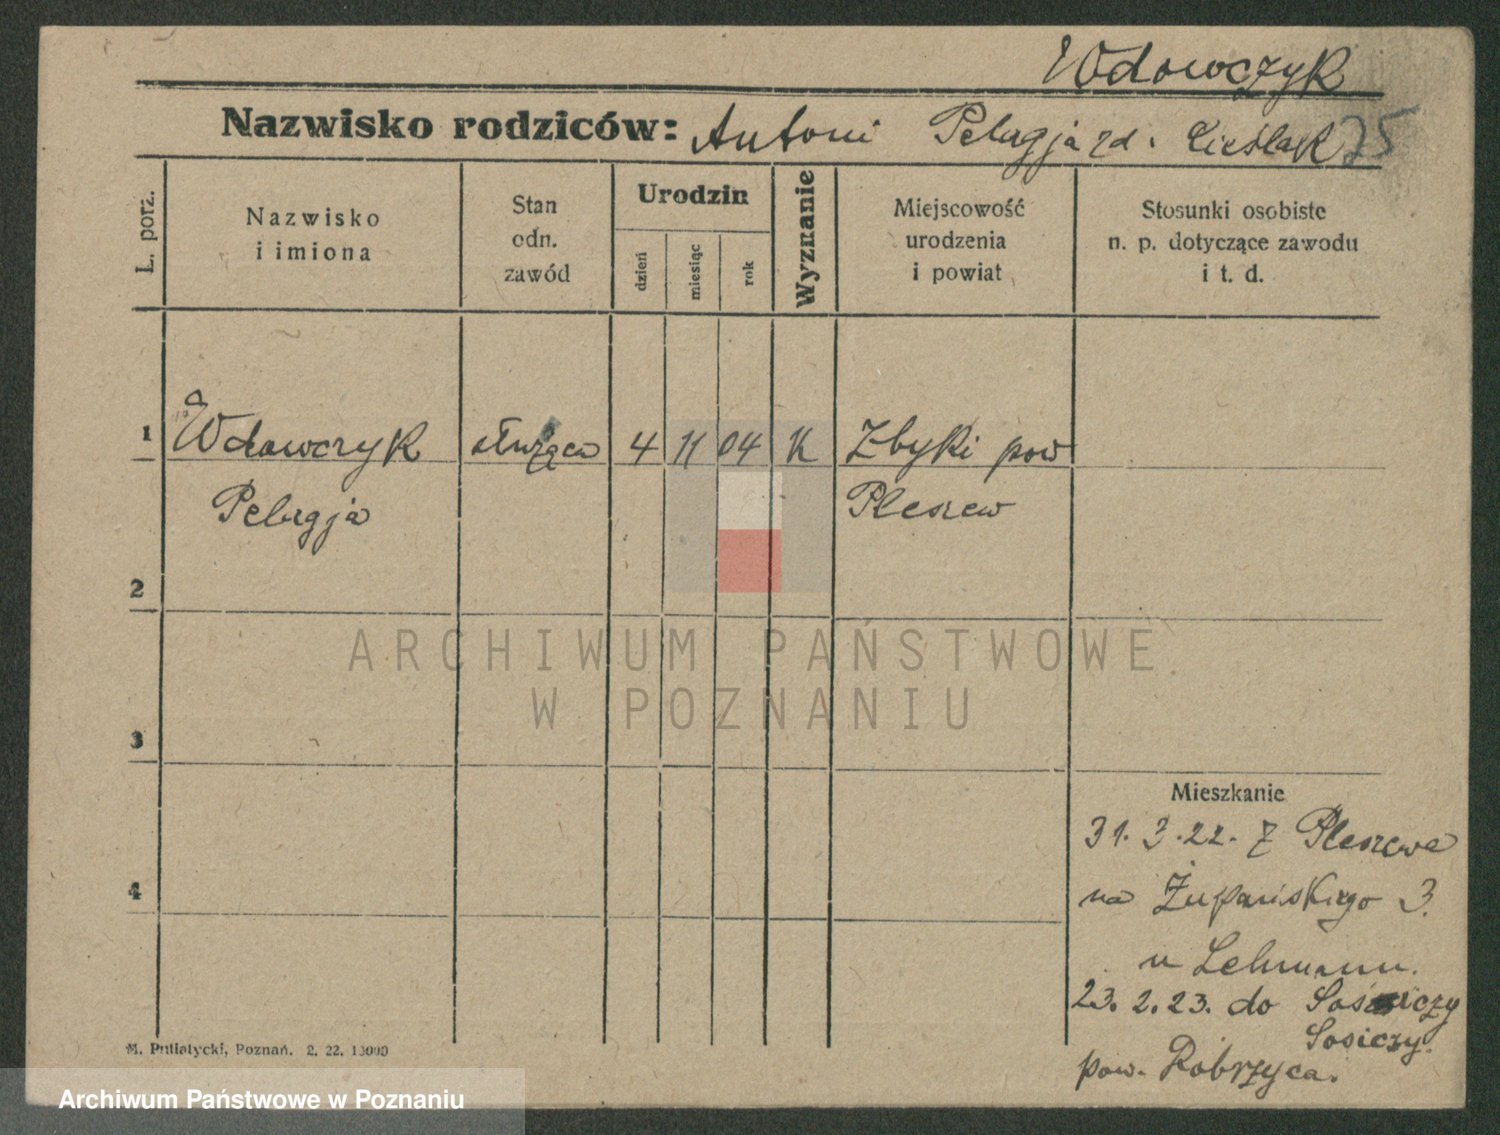 Wdowczyk
Nazwisko rodziców: Antoni Pelagja zd. Cieślak 75
L. porz.
Nazwisko
i imiona
Stan
odn.
zawód
Urodzin
dzień
miesiąc
rok
Wyznanie
Miejscowość
urodzenia
i powiat
Stosunki osobiste
n. p. dotyczące zawodu
i t. d.
1 Wdowczyk służąca 4 11 04 K Zbyki pow
Pelagja Pleszew
2
3
ARCHIWUM PAŃSTWOWE
W POZNANIU
Mieszkanie
31. 3. 22. z Pleszewa
4
na Żupańskiego 3.
u Lehmann.
23. 2. 23. do
Sosiczy.
pow. Dobrzyca.
M. Putiatycki, Poznań. 2. 22. 13000
Archiwum Państwowe w Poznaniu